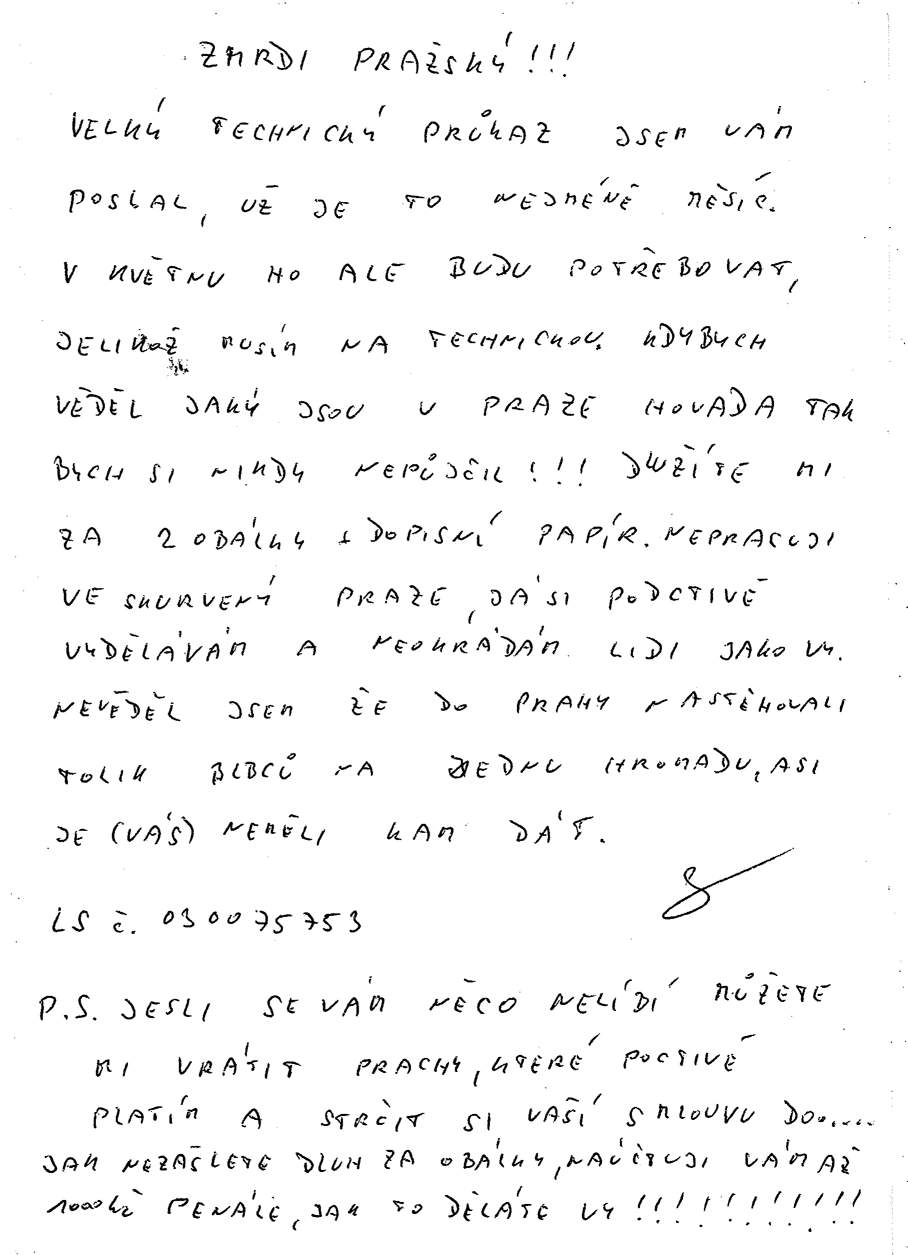 ZMRDI PRAŽSKÝ!!!
VELKÝ TECHNICKÝ PRŮKAZ JSEM VÁM
POSLAL, UŽ JE TO NEJMÉNĚ MĚSÍC.
V KVĚTNU HO ALE BUDU POTŘEBOVAT,
JELIKOŽ MUSÍM NA TECHNICKOU. KDYBYCH
VĚDĚL JAKÝ JSOU V PRAZE HOVADA TAK
BYCH SI NIKDY NEPŮJČIL!!! DLUŽÍTE MI
ZA 2 OBÁLKY + DOPISNÍ PAPÍR. NEPRACUJI
VE SKURVENÝ PRAZE, JÁ SI PODCTIVĚ
VYDĚLÁVÁM A NEOKRÁDÁM LIDI JAKO VY.
NEVĚDĚL JSEM ŽE DO PRAHY NASTĚHOVALI
TOLIK BLBCŮ NA JEDNU HROMADU, ASI
JE (VÁS) NEMĚLI KAM DÁT.
LS č. 030075753
P.S. JESLI SE VÁM NĚCO NELÍBÍ MŮŽETE
MI VRÁTIT PRACHY, KTERÉ POCTIVĚ
PLATÍM A STRČIT SI VAŠÍ SMLOUVU DO......
JAK NEZAŠLETE DLUH ZA OBÁLKY, NAÚČTUJI VÁM AŽ
1000 Kč PENÁLE, JAK TO DĚLÁTE VY !!!!!!!!!!!!